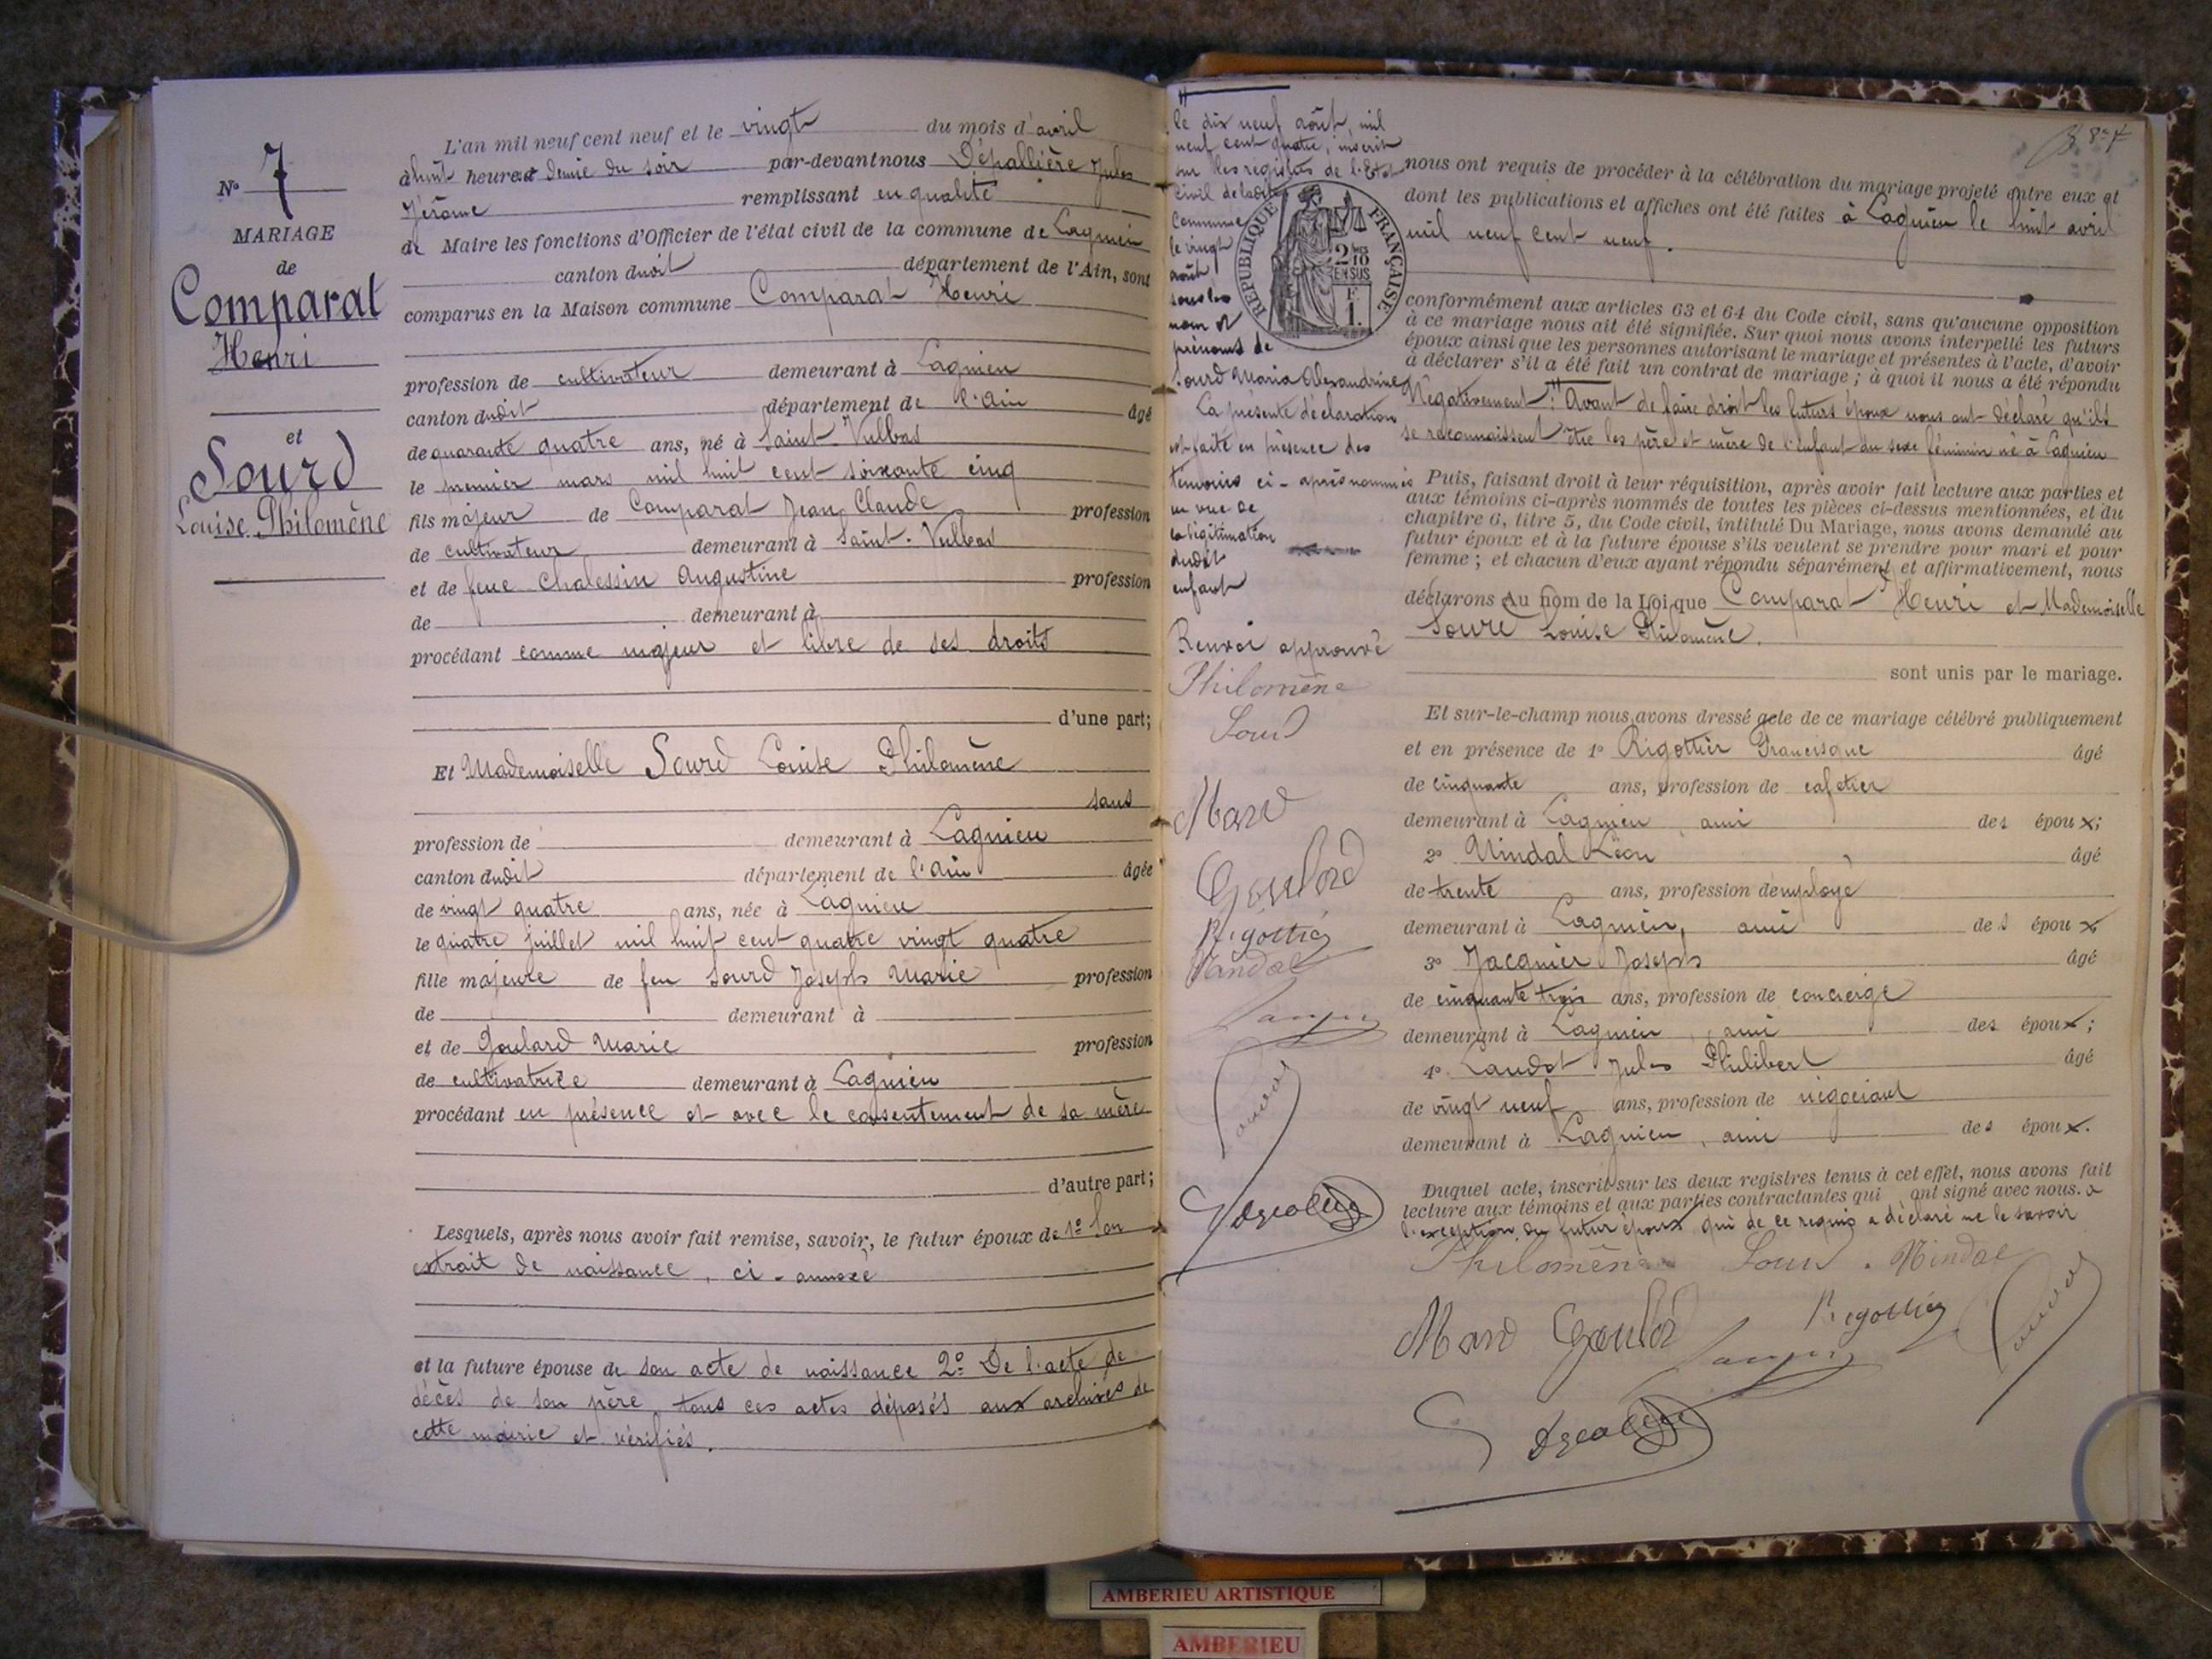 N° 7
MARIAGE
de
Comparat
Henri
et
Sourd
Louise Philomène
L'an mil neuf cent neuf et le vingt du mois d'avril
à huit heures et demie du soir par-devant nous Dépallière Jules
Jérôme remplissant en qualité
de Maire les fonctions d'Officier de l'état civil de la commune de Lagnieu
canton dudit département de l'Ain, sont
comparus en la Maison commune Comparat Henri
profession de cultivateur demeurant à Lagnieu
canton dudit département de l'Ain âgé
de quarante quatre ans, né à Saint-Vulbas
le premier mars mil huit cent soixante cinq
fils majeur de Comparat Jean Claude profession
de cultivateur demeurant à Saint-Vulbas
et de feue Chalessin Augustine profession
de demeurant à
procédant comme majeur et libre de ses droits
d'une part;
Et Mademoiselle Sourd Louise Philomène
sans
profession de demeurant à Lagnieu
canton dudit département de l'Ain âgée
de vingt quatre ans, née à Lagnieu
le quatre juillet mil huit cent quatre vingt quatre
fille majeure de feu Sourd Joseph Marie profession
de demeurant à
et de Goulard Marie profession
de cultivatrice demeurant à Lagnieu
procédant en présence et avec le consentement de sa mère
d'autre part;
Lesquels, après nous avoir fait remise, savoir, le futur époux de 1° Son
extrait de naissance, ci-annexé
et la future épouse de son acte de naissance 2° De l'acte de
décès de son père, tous ces actes déposés aux archives de
cette mairie et vérifiés.
le dix neuf août, mil
neuf cent quatre, inscrit
sur les registres de l'Etat
Civil de ladite
Commune
le vingt
août
sous les
nom et
prénoms de
Sourd Maria Alexandrine
La présente déclaration
est faite en présence des
témoins ci-après nommés
en vue de
la légitimation
dudit
enfant
Renvoi approuvé
Philomène
Sourd
Goulard
Rigottier
Vindal
RÉPUBLIQUE FRANÇAISE
2/10
EN SUS
F.
1.
nous ont requis de procéder à la célébration du mariage projeté entre eux et
dont les publications et affiches ont été faites à Lagnieu le huit avril
mil neuf cent neuf.
conformément aux articles 63 et 64 du Code civil, sans qu'aucune opposition
à ce mariage nous ait été signifiée. Sur quoi nous avons interpellé les futurs
époux ainsi que les personnes autorisant le mariage et présentes à l'acte, d'avoir
à déclarer s'il a été fait un contrat de mariage; à quoi il nous a été répondu
Négativement. Avant de faire droit les futurs époux nous ont déclaré qu'ils
se reconnaissent être les père et mère de l'enfant du sexe féminin né à Lagnieu
Puis, faisant droit à leur réquisition, après avoir fait lecture aux parties et
aux témoins ci-après nommés de toutes les pièces ci-dessus mentionnées, et du
chapitre 6, titre 5, du Code civil, intitulé Du Mariage, nous avons demandé au
futur époux et à la future épouse s'ils veulent se prendre pour mari et pour
femme; et chacun d'eux ayant répondu séparément et affirmativement, nous
déclarons Au nom de la Loi que Comparat Henri et Mademoiselle
Sourd Louise Philomène.
sont unis par le mariage.
Et sur-le-champ nous avons dressé acte de ce mariage célébré publiquement
et en présence de 1° Rigottier Francisque âgé
de cinquante ans, profession de cafetier
demeurant à Lagnieu, ami des époux;
2° Vindal Léon âgé
de trente ans, profession d'employé
demeurant à Lagnieu, ami des époux
3° Jacquier Joseph âgé
de cinquante trois ans, profession de concierge
demeurant à Lagnieu, ami des époux;
4° Laudot Jules Philibert âgé
de vingt neuf ans, profession de négociant
demeurant à Lagnieu, ami des époux.
Duquel acte, inscrit sur les deux registres tenus à cet effet, nous avons fait
lecture aux témoins et aux parties contractantes qui ont signé avec nous. à
l'exception du futur époux qui de ce requis a déclaré ne le savoir
Philomène Sourd. Vindal
Goulard Rigottier
AMBERIEU ARTISTIQUE
AMBERIEU